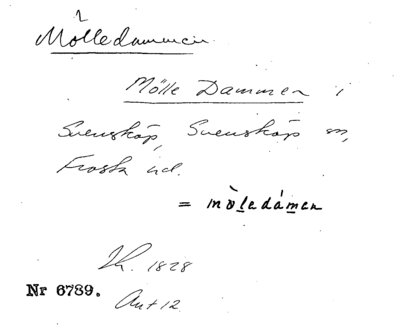 Mölledammen
Mölle Dammen i
Svensköp, Svensköp sn,
Frosta hd.
= mòledámen
1828
Nr 6789.
Ant 12